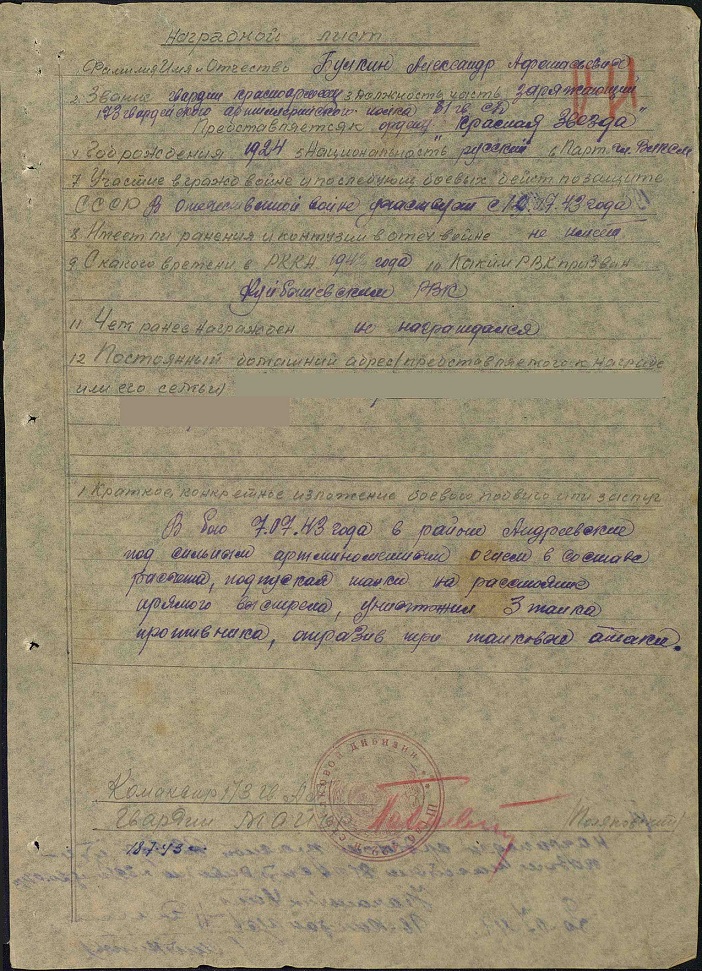 Наградной лист
Фамилия Имя и Отчество Бучкин Александр Афонасьевич
2 Звание гвардии красноармеец 3 Должность, часть заряжающий
173 гвардейского артиллерийского полка 81 гв сд
Представляется к ордену "Красная Звезда"
4 Год рождения 1924 5 Национальность русский 6 Парт. чл. ВЛКСМ
7 Участие в гражд войне и последующ боевых дейст по защите
СССР В Отечественной войне участвует с 07.43 года
8 Имеет ли ранения и контузии в отеч войне не имеет
9 С какого времени в РККА года 10 Каким РВК призван
Куйбышевским РВК
11 Чем ранее награжден не награждался
12 Постоянный домашний адрес (представляемого к награде
или его семьи)
1 Краткое, конкретное изложение боевого подвига или заслуг
В бою 7.07.43 года в районе Андреевские
под сильным артминометным огнем в составе
расчета, подпуская танки на расстояние
прямого выстрела, уничтожил 3 танка
противника, отразив три танковые атаки.
Командир 173 гв
Гвардии майор
18-7-43